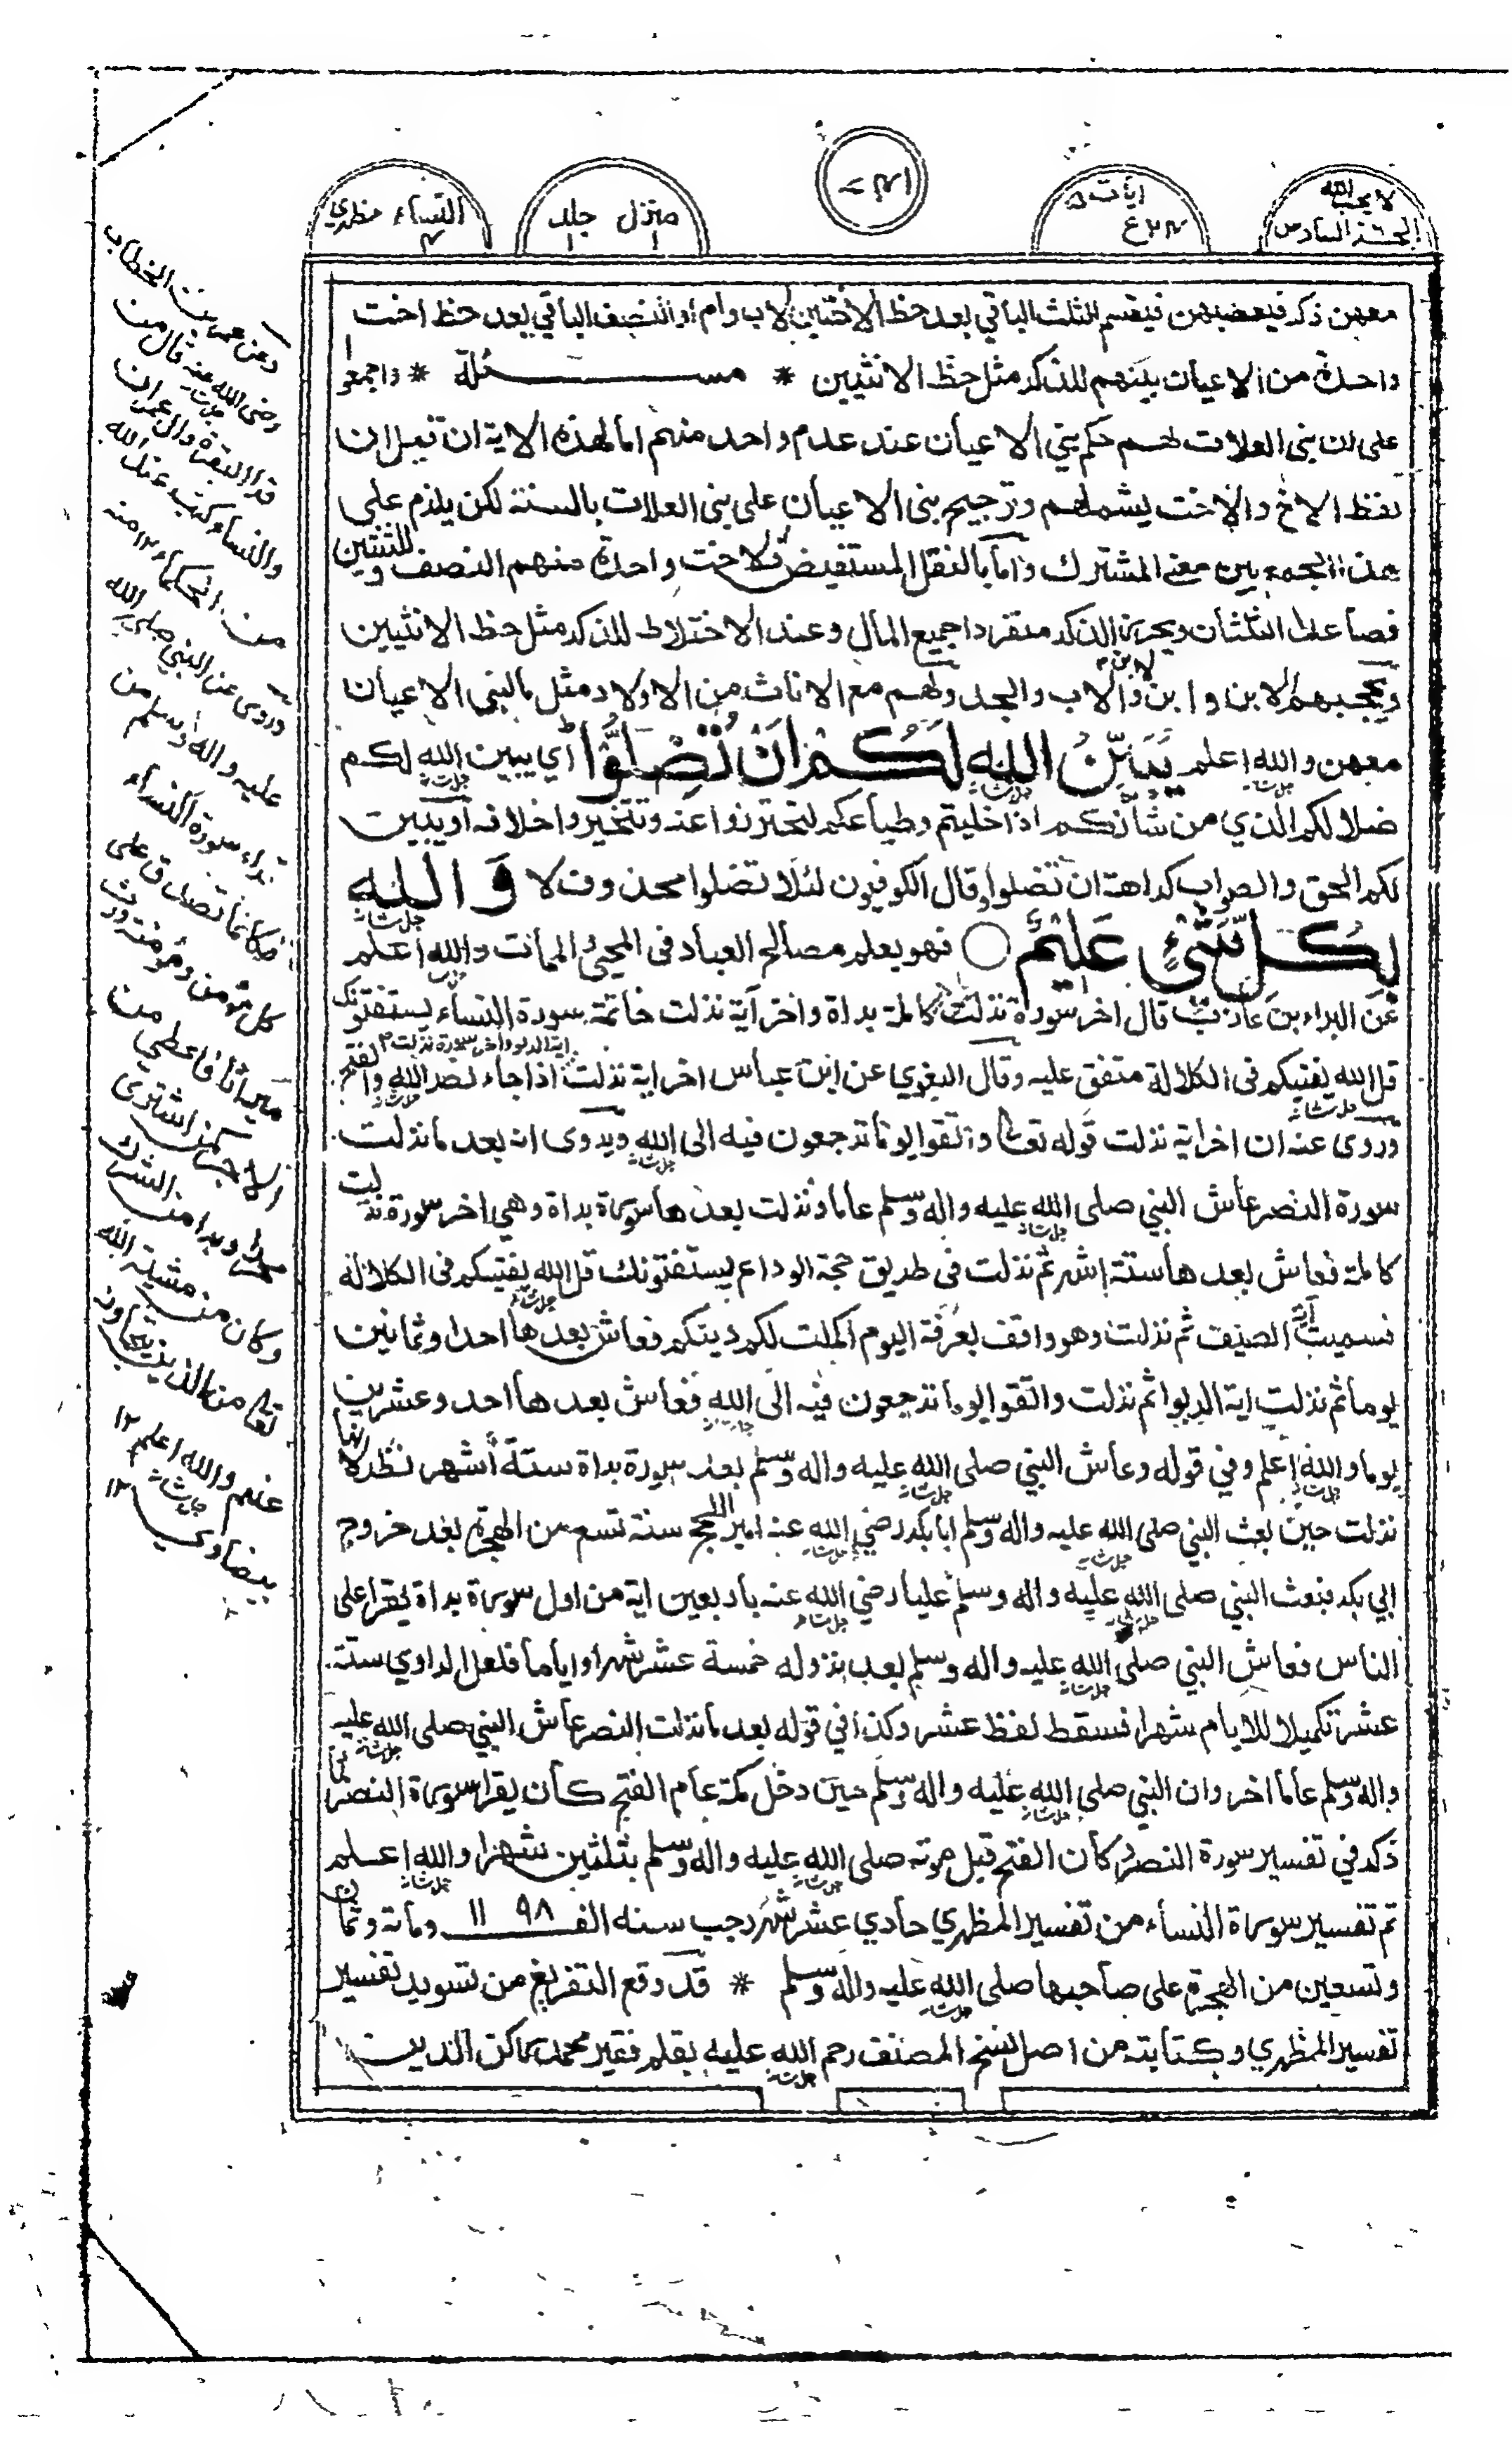 لا يحب الله
الجزء السادس
ايات
منزل جلد
١ ١
النساء مظهري
٤
معهن ذكر فيعصبهن فيقسم الثلث الباقي بعد حظ الاختين لاب وام او النصف الباقي بعد حظ اخت
واحدة من الاعيان بينهم للذكر مثل حظ الانثيين * مسئلة * واجمعوا
على ان بنى العلات لهم حكم بني الاعيان عند عدم واحد منهم اما لهذه الاية ان قيل ان
لفظ الاخ والاخت يشملهم وترجيح بنى الاعيان على بنى العلات بالسنة لكن يلزم على
هذا الجمع بين معنے المشترك واما بالنقل المستفيض فلاخت واحدة منهم النصف وللثنتين
فصاعدا الثلثان ويحرز الذكر منفردا جميع المال وعند الاختلاط للذكر مثل حظ الانثيين
ويحجبهم الابن وابن الابن والاب والجد ولهم مع الاناث من الاولاد مثل ما لبنى الاعيان
معهن والله اعلم يُبَيِّنُ اللهُ لَكُمْ اَنْ تَضِلُّوْا اي يبين الله لكم
ضلالكم الذي من شانكم اذا خليتم وطباعكم لتحترزوا عنه وتتخيروا خلافه او يبين
لكم الحق والصواب كراهة ان تضلوا وقال الكوفيون لئلا تضلوا محذوف لا وَاللهُ
بِكُلِّ شَيْءٍ عَلِيْمٌ ○ فهو يعلم مصالح العباد فى المحيى والممات والله اعلم
عن البراء بن عازب قال اخر سورة نزلت كاملة براة واخر آية نزلت خاتمة سورة النساء يستفتونك
قل الله يفتيكم فى الكلالة متفق عليه وقال البغوي عن ابن عباس اخر اية نزلت اية الربوا واخر سورة نزلت اذا جاء نصر الله والفتح
وروى عنه ان اخر اية نزلت قوله تعالى واتقوا يوما ترجعون فيه الى الله ويروى انه بعد ما نزلت
سورة النصر عاش النبي صلى الله عليه واله وسلم عاما ونزلت بعدها سورة براة وهي اخر سورة نزلت
كاملة فعاش بعدها ستة اشهر ثم نزلت فى طريق حجة الوداع يستفتونك قل الله يفتيكم فى الكلالة
فسميت اية الصيف ثم نزلت وهو واقف بعرفة اليوم اكملت لكم دينكم فعاش بعدها احدا وثمانين
يوما ثم نزلت اية الربوا ثم نزلت واتقوا يوما ترجعون فيه الى الله فعاش بعدها احد وعشرين
يوما والله اعلم وفي قوله وعاش النبي صلى الله عليه واله وسلم بعد سورة براة ستة أشهر نظر لانها
نزلت حين بعث النبي صلى الله عليه واله وسلم ابا بكر رضي الله عنه امير الحج سنة تسع من الهجرة بعد خروج
ابي بكر فبعث النبي صلى الله عليه واله وسلم عليا رضي الله عنه باربعين اية من اول سورة براة يقرا على
الناس فعاش النبي صلى الله عليه واله وسلم بعد نزوله خمسة عشر شهرا واياما فلعل الراوي ستة
عشر تكميلا للايام شهرا فسقط لفظ عشر وكذا في قوله بعد ما نزلت النصر عاش النبي صلى الله عليه
واله وسلم عاما اخر وان النبي صلى الله عليه واله وسلم حين دخل مكة عام الفتح كان يقرا سورة النصر كما
ذكر في تفسير سورة النصر وكان الفتح قبل موته صلى الله عليه واله وسلم بثلثين شهرا والله اعلم
تم تفسير سورة النساء من تفسير المظهري حادي عشر شهر رجب سنه الف ١١٩٨ ومائة وثمان
وتسعين من الهجرة على صاحبها صلى الله عليه واله وسلم * قد وقع التفريغ من تسويد تفسير
تفسير المظهري وكتابته من اصل نسخ المصنف رحم الله عليه بقلم فقير محمد ركن الدين
وعن عمر بن الخطاب
رضى الله عنه قال من
قرا البقرة وال عمران
والنساء كتب عند الله
من الحكماء ١٢ منه
وروى عن النبي صلى الله
عليه واله وسلم من
قراء سورة النساء
فكانما تصدق على
كل مؤمن ومؤمنة ورث
ميراثا واعطي من
الاجر كمن اشترى
محررا وبرا من الشرك
وكان من مشيئة الله
تعالى من الذين يتجاوز
عنهم والله اعلم ١٢
بيضاوي ١٢